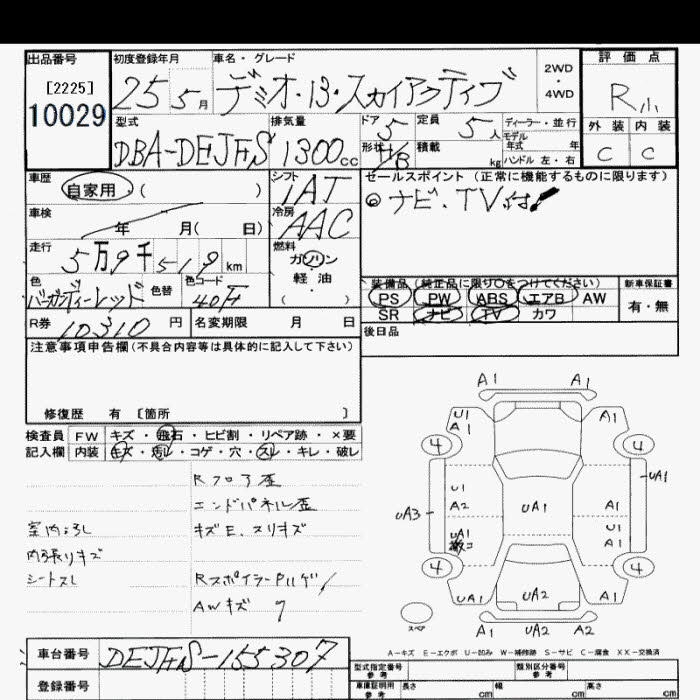 出品番号
[2225]
10029
初度登録年月
25 5月
車名・グレード
デミオ・13・スカイアクティブ
2WD
・
4WD
評価点
R小
外装 内装
C C
型式
DBA-DEJFS
排気量
1300cc
ドア
5
形状
H/B
定員
5人
積載
kg
ディーラー・並行
モデル
年式 年
ハンドル 左・右
車歴
自家用・( )
シフト
IAT
車検
年 月( 日)
冷房
AAC
走行
5万9千519km
燃料
ガソリン
軽油
( )
色
バーガンディーレッド
色替
色コード
40F
R券
10310円
名変期限 月 日
セールスポイント (正常に機能するものに限ります)
◎ナビ・TV付
装備品(純正品に限り○をつけてください)
PS PW ABS エアB AW
SR ナビ TV カワ
新車保証書
有・無
後日品
注意事項申告欄(不具合内容等は具体的に記入して下さい)
修復歴 有 〔箇所 〕
検査員
記入欄
FW キズ・飛石・ヒビ割・リペア跡・×要
内装 キズ・汚レ・コゲ・穴・スレ・キレ・破レ
Rフロア歪
エンドパネル歪
キズE、スリキズ
RスポイラーPハゲ
AWキズ
室内汚し
内張りキズ
シートスレ
A1 A1
U1
A1
A1
4 4
UA1
U1
A2
UA3
UA1
A1
U1
A1
UA1
4 4
UA1 UA2 A1
スペア
A1 UA2 A2
A-キズ E-エクボ U-凹み W-補修跡 S-サビ C-腐食 XX-交換済
車台番号
DEJFS-155307
登録番号
型式指定番号
参考
類別区分番号
参考
車庫証明用
参考
長さ cm
幅 cm
高さ cm